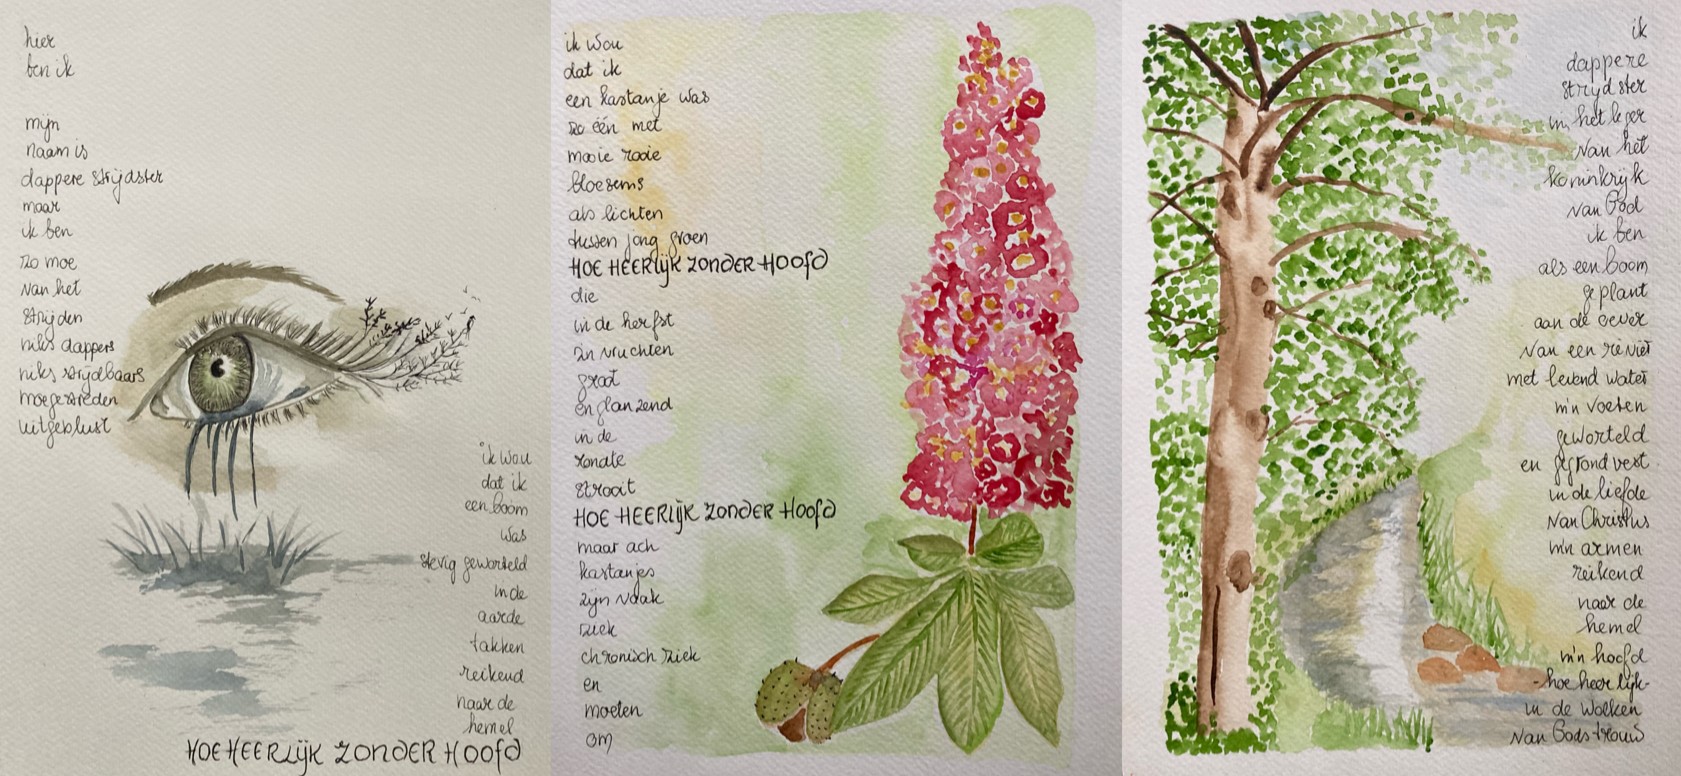 hier
ben ik
mijn
naam is
dappere strijdster
maar
ik ben
zo moe
van het
strijden
niks dappers
niks strijdbaars
moegestreden
uitgeblust
ik wou
dat ik
een boom
was
stevig geworteld
in de
aarde
takken
reikend
naar de
hemel
HOE HEERlijk zonder Hoofd
ik wou
dat ik
een kastanje was
zo één met
mooie rooie
bloesems
als lichten
tussen jong groen
HOE HEERlijk zonder Hoofd
die
in de herfst
z'n vruchten
groot
en glanzend
in de
rondte
strooit
HOE HEERlijk zonder Hoofd
maar ach
kastanjes
zijn vaak
ziek
chronisch ziek
en
moeten
om
ik
dappere
strijdster
in het leger
van het
koninkrijk
van God
ik ben
als een boom
geplant
aan de oever
van een rivier
met levend water
m'n voeten
geworteld
en gegrondvest
in de liefde
van Christus
m'n armen
reikend
naar de
hemel
m'n hoofd
-hoe heerlijk-
in de wolken
van Gods trouw